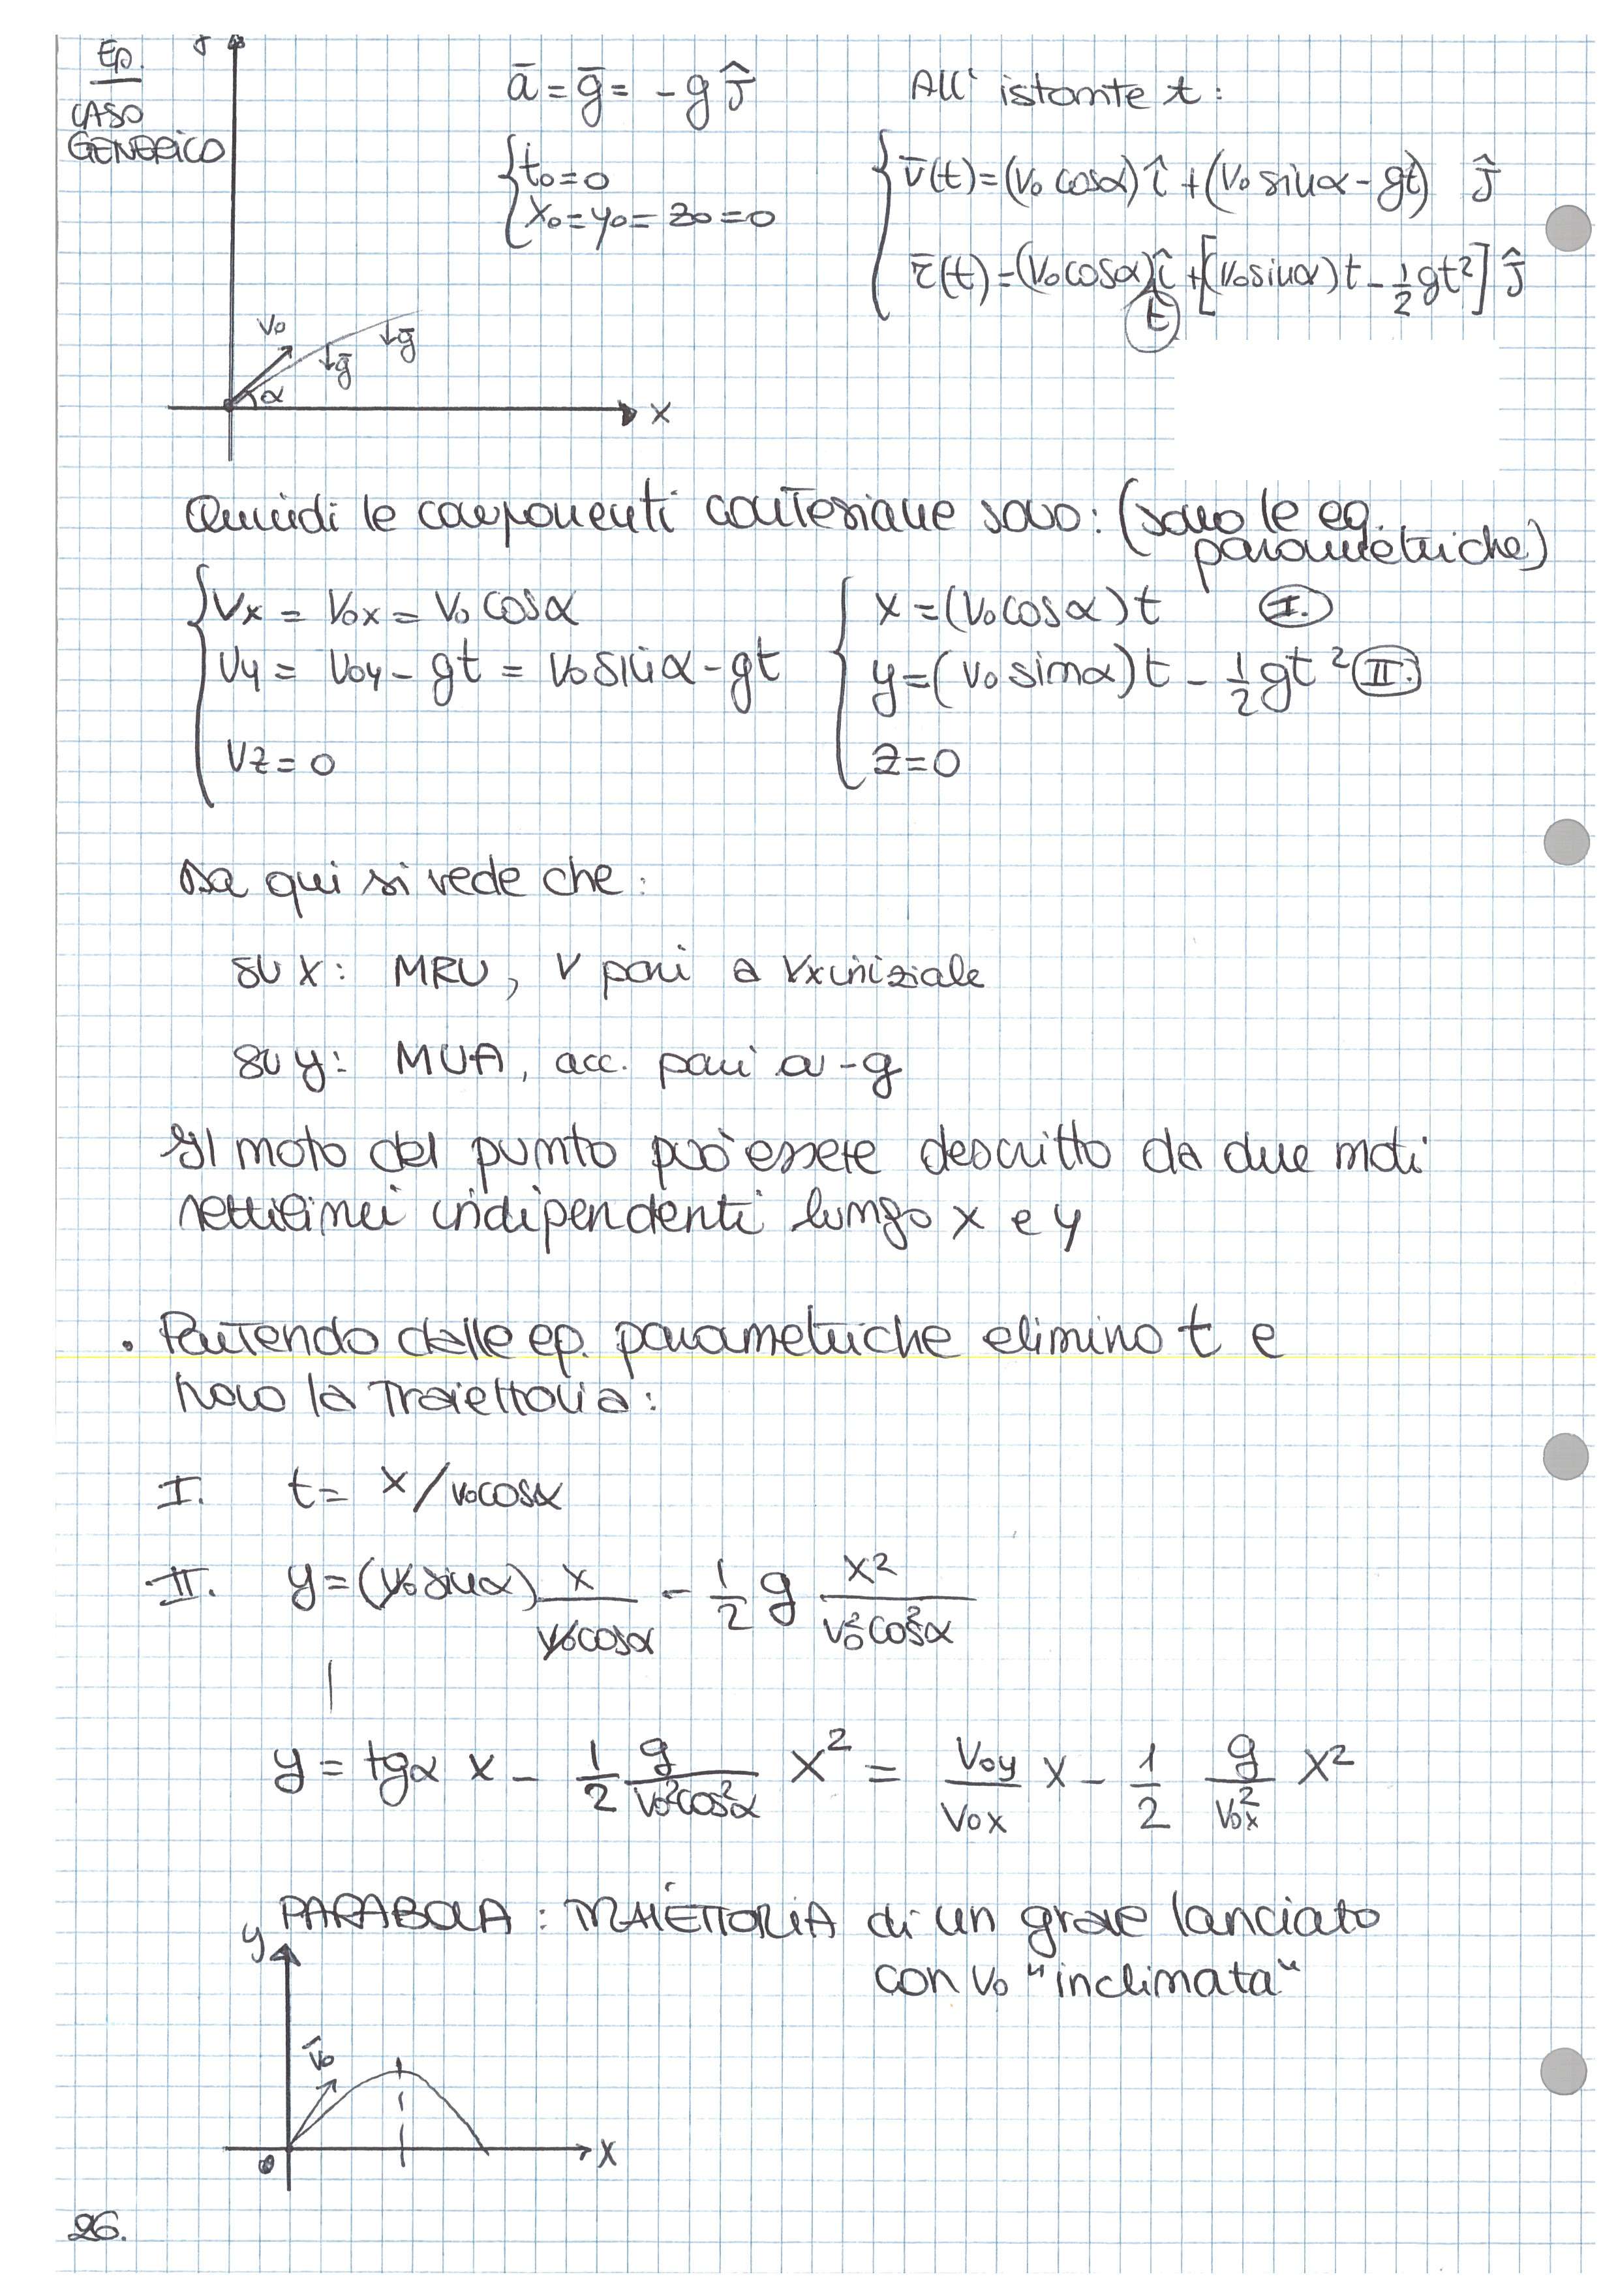 Eq.
CASO
GENERICO
y
ā = ḡ = -g ĵ
{ t₀=0
x₀=y₀=z₀=0
All' istante t:
{ v̄(t)=(v₀ cosα) î +(v₀ sinα-gt) ĵ
r̄(t)=(v₀cosα) î +[(v₀sinα)t - 1/2 gt²] ĵ
t
v₀
↓ḡ
↓ḡ
α
x
Quindi le componenti cartesiane sono: (sono le eq.
parametriche)
{ Vx = V₀x = V₀ cosα
Vy = V₀y - gt = V₀ sinα - gt
Vz = 0
{ x=(V₀cosα)t I.
y=(V₀ sinα)t - 1/2 gt² II.
z=0
Da qui si vede che:
su x: MRU, V pari a Vx iniziale
su y: MUA, acc. pari a -g
Il moto del punto può essere descritto da due moti
rettilinei indipendenti lungo x e y
• Partendo dalle eq. parametriche elimino t e
trovo la Traiettoria:
I. t= x/v₀cosα
II. y=(v₀ sinα) x/v₀cosα - 1/2 g x²/v₀²cos²α
y = tgα x - 1/2 g/v₀²cos²α x² = V₀y/V₀x x - 1/2 g/V₀x² x²
PARABOLA: TRAIETTORIA di un grave lanciato
con V₀ "inclinata"
y
v̄₀
x
0
26.